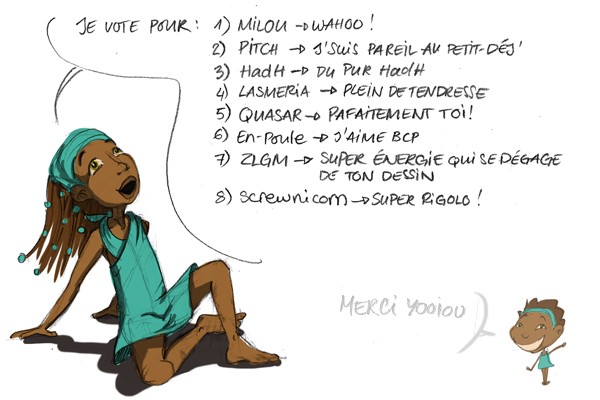 JE VOTE POUR : 1) MILOU → WAHOO !
2) PITCH → J'SUIS PAREIL AU PETIT-DÉJ'
3) HadH → DU PUR HadH
4) LASMERIA → PLEIN DE TENDRESSE
5) QUASAR → PAFAITEMENT TOI !
6) En-Poule → J'AIME BCP
7) ZLGM → SUPER ÉNERGIE QUI SE DÉGAGE
DE TON DESSIN
8) Screwnicorn → SUPER RIGOLO !
MERCI YOOIOU